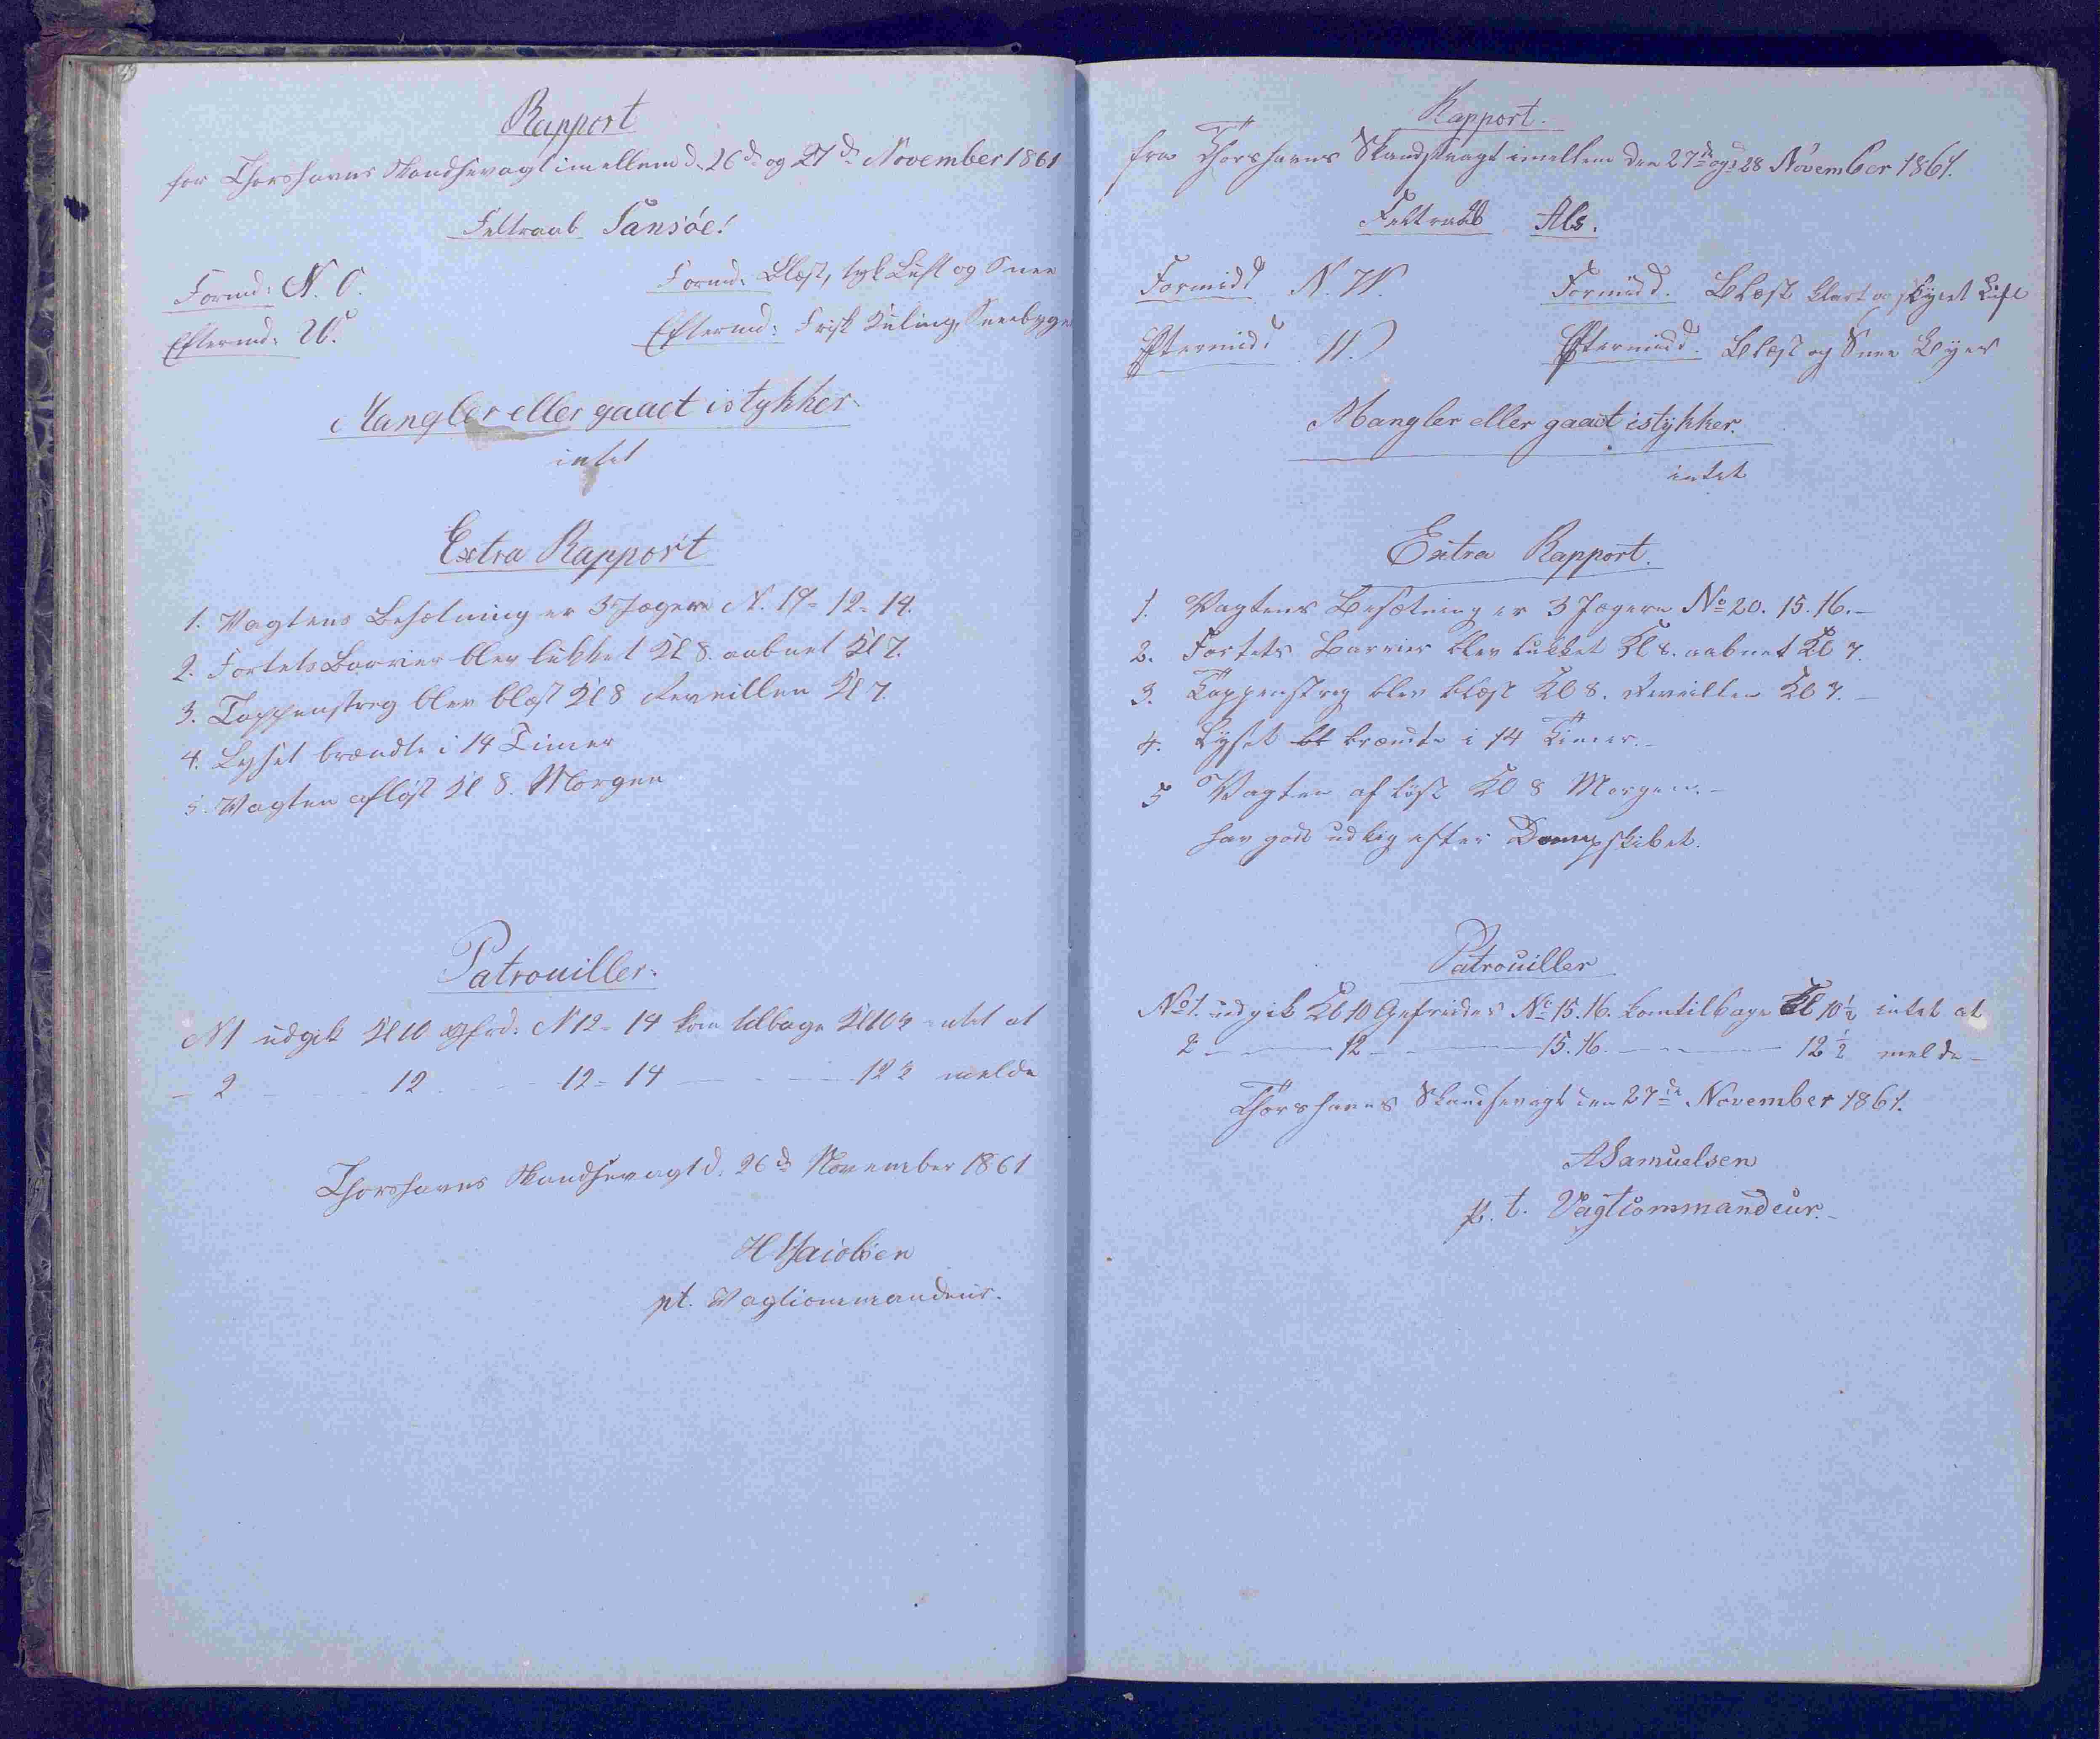 Rapport
for Thorshavns Skandsevagt imellem d. 26d. og 27d. November 1861
Feltraab Samsöe!
Formd: N. O. Formd: Blæst, tyk Luft og Snee
Eftermd: Frisk Kuling, Sneebyge
Mangler eller gaaet istykker
intet
Extra Rapport
1. Vagtens Besætning er 3 Jægere N. 19- 12- 14.
2. Fortets Barrier blev lukket Kl 8. aabnet Kl 7.
3. Tappenstreg blev blæst Kl 8 Reveillen Kl 7.
4. Lyset brændte i 14 Timer
5. Vagten afløst Kl 8. Morgen
Patrouiller.
N 1 udgik Kl 10 N 12- 14 kom tilbage Kl 10½ intet at
- 2 12 12- 14 12½ melde
Thorshavns Skandsevagt d. 26d. November 1861
H Jacobsen
pt. Vagtcommandeur.
Rapport.
fra Thorshavns Skandsvagt imellem den 27de og 28 November 1861.
Feltraab Als.
Formidd N. W. Formidd. Blæst klart og skyet Luft
Eftermidd Eftermidd. Blæst og Snee Byer
Mangler eller gaaet istykker.
intet
Extra Rapport.
1. Vagtens Besætning er 3 Jægere No 20. 15. 16.-
2. Fortets Barrier blev lukket Kl 8. aabnet Kl 7.
3. Tappenstreg blev blæst Kl 8. Reveillen Kl 7.-
4. Lyset bl brændte i 14 Timer.-
5 Vagten afløst Kl 8 Morgen.-
hav godt udkig efter Dampskibet.
Patrouiller
No 1. udgik Kl 10 Gefreider No 15. 16. kom tilbage Kl 10½ intet at
2 - 12 - 15. 16. - 12½ melde -
Thorshavns Skandsevagt den 27de November 1861.
A Samuelsen
p. t. Vagtcommandeur.-